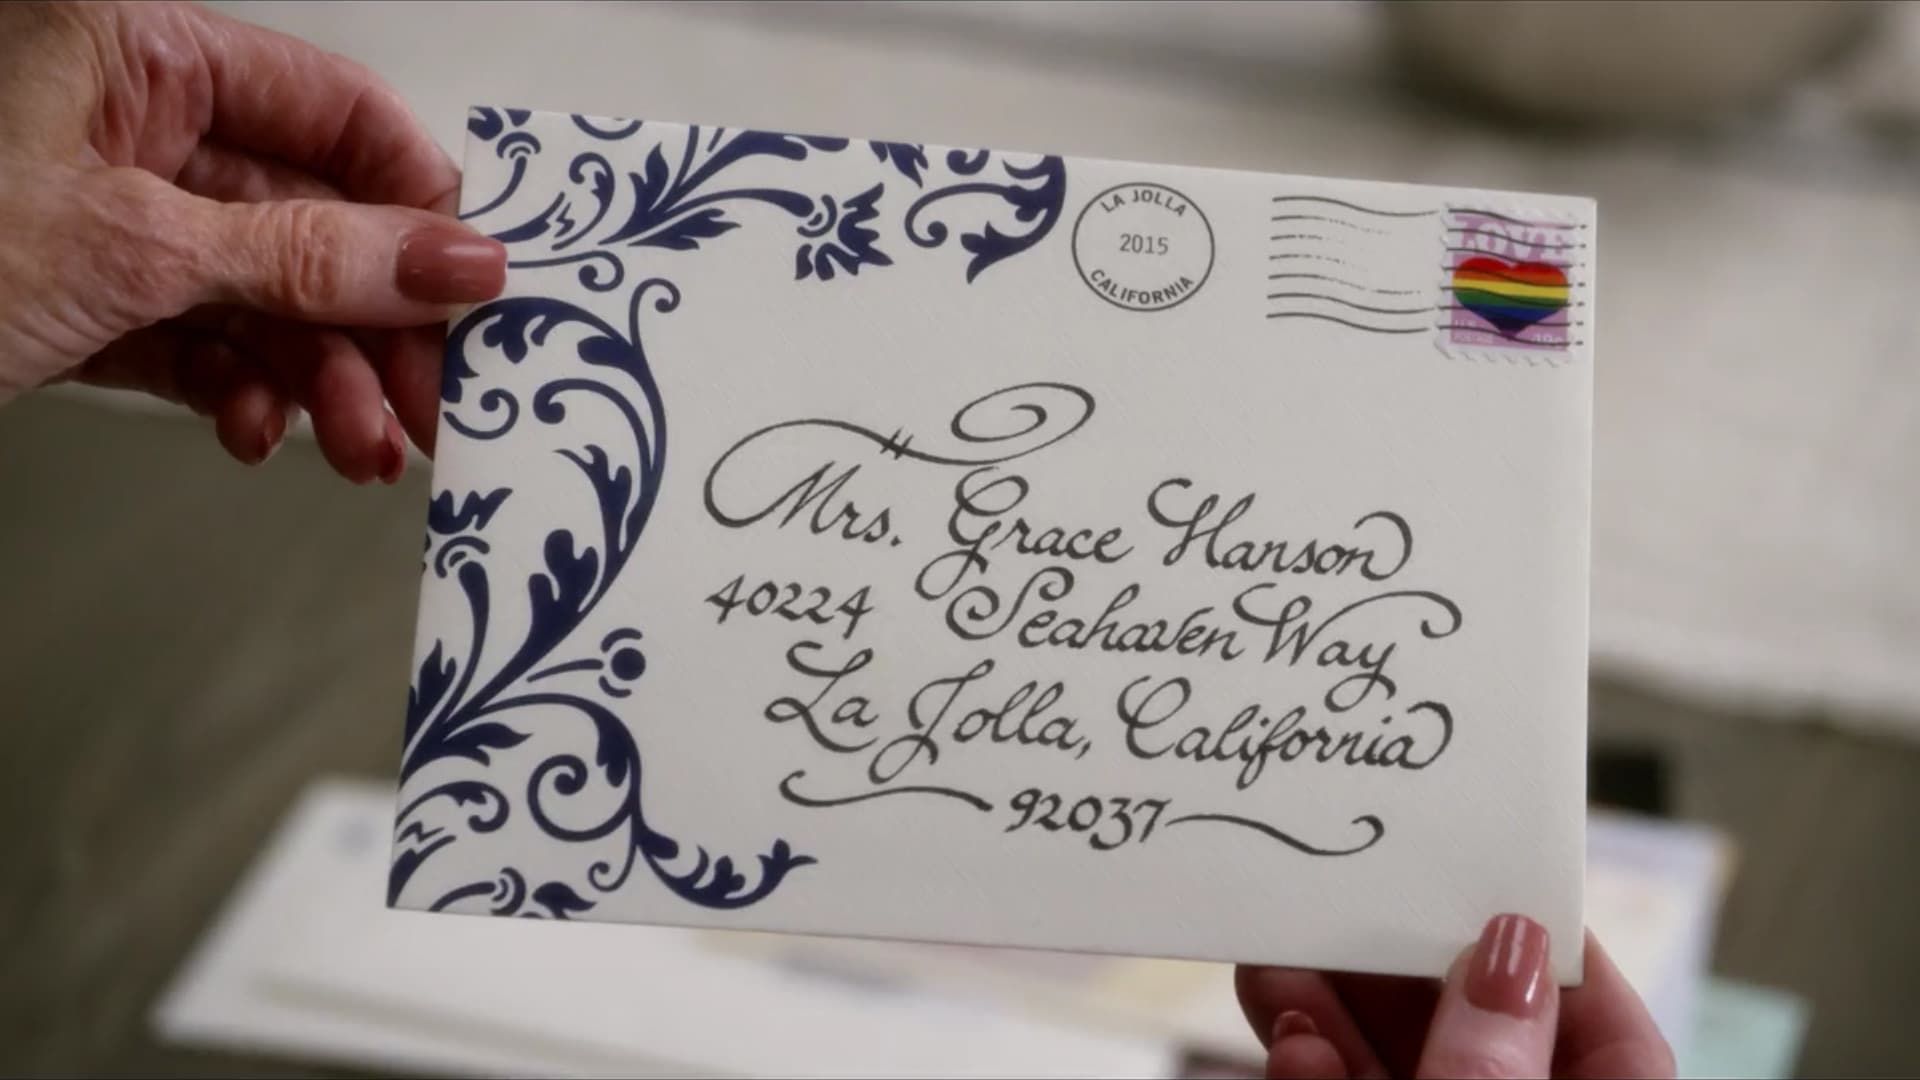 LA JOLLA
2015
CALIFORNIA
LOVE
Mrs. Grace Hanson
40224 Seahaven Way
La Jolla, California
92037